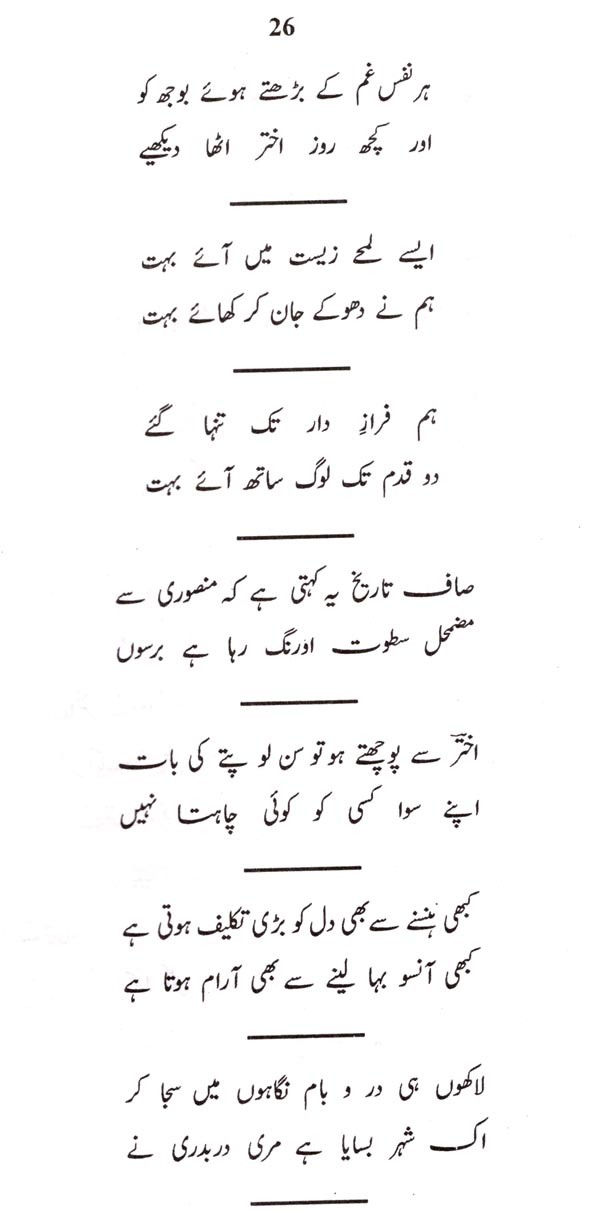 26
ہر نفس غم کے بڑھتے ہوئے بوجھ کو
اور کچھ روز اختر اٹھا دیکھیے
ایسے لمحے زیست میں آئے بہت
ہم نے دھوکے جان کر کھائے بہت
ہم فرازِ دار تک تنہا گئے
دو قدم تک لوگ ساتھ آئے بہت
صاف تاریخ یہ کہتی ہے کہ منصوری سے
مضمحل سطوت اورنگ رہا ہے برسوں
اخترؔ سے پوچھتے ہو تو سن لو پتے کی بات
اپنے سوا کسی کو کوئی چاہتا نہیں
کبھی ہنسنے سے بھی دل کو بڑی تکلیف ہوتی ہے
کبھی آنسو بہا لینے سے بھی آرام ہوتا ہے
لاکھوں ہی در و بام نگاہوں میں سجا کر
اک شہر بسایا ہے مری دربدری نے